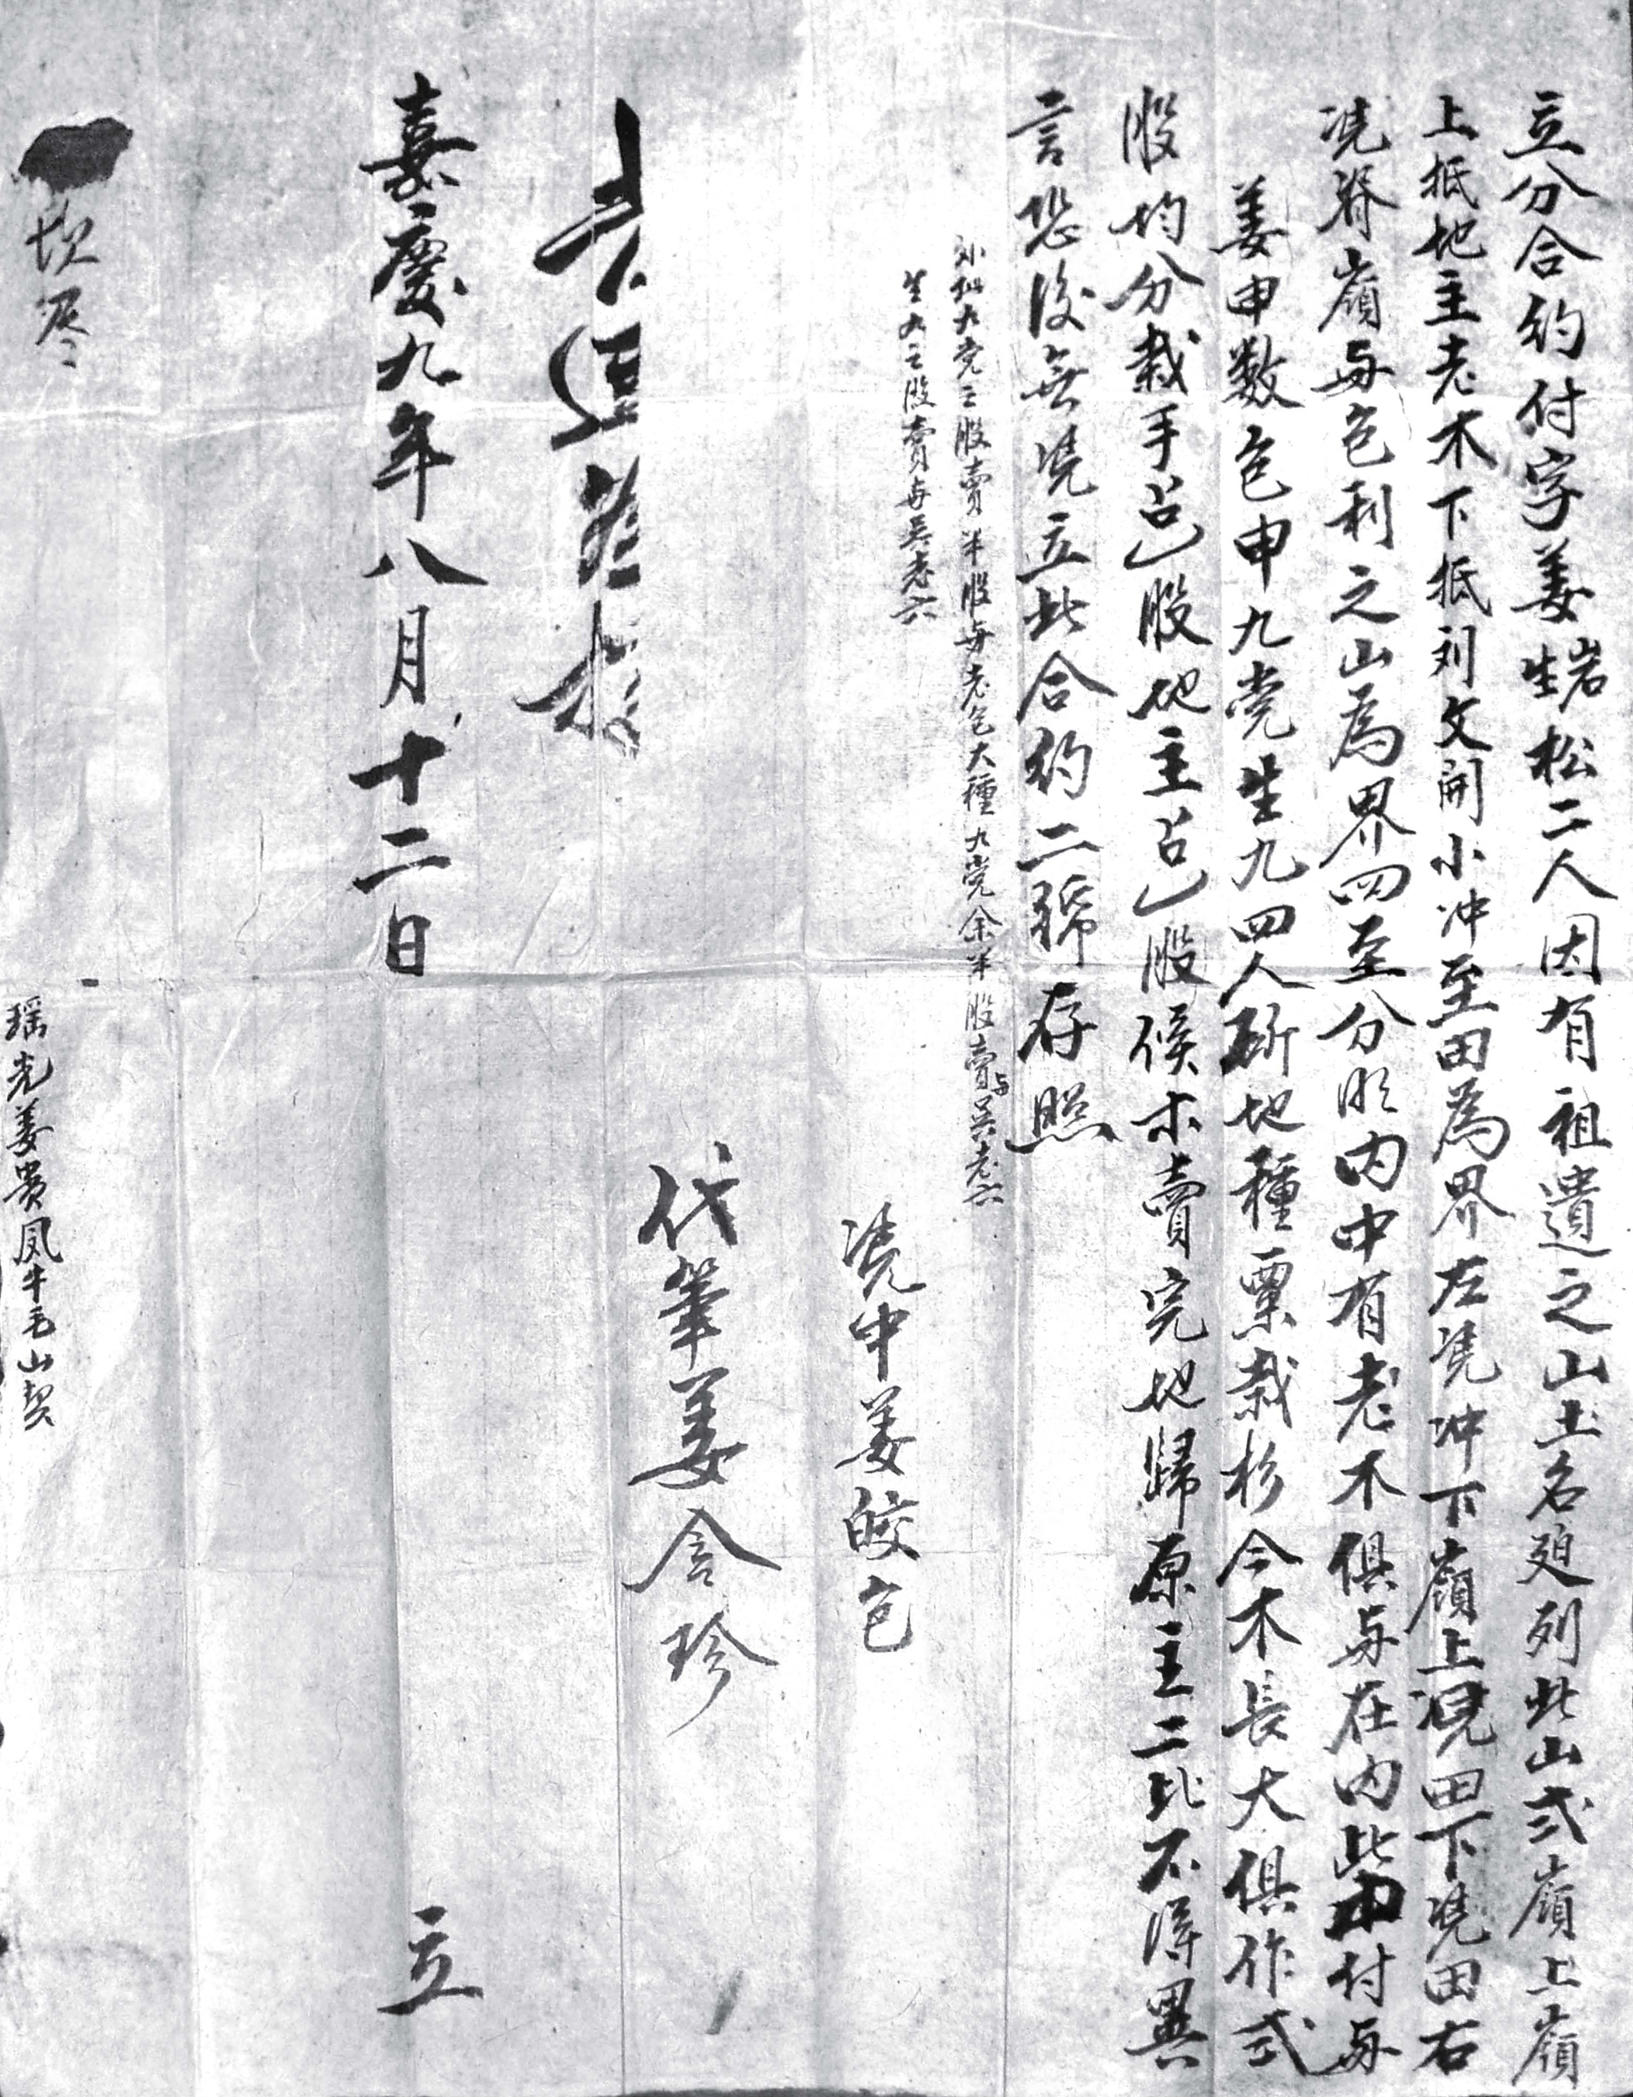 立分合約付字姜生岩松二人因有祖遺之山土名廹列此山弍嶺上嶺
上抵地主老木下抵刘文開小冲至田為界左凴冲下嶺上凴田下凴田右
凴脊嶺与包利之山為界四至分明内中有老木俱与在内此山付与
姜申数包申九党生九四人斫地種粟栽杉今木長大俱作弍
股均分栽手占乙股地主占乙股候木賣完地歸原主二比不得異
言恐後無凴立此合約二帋存照
外批九党三股賣半股与老包大種九党余半股賣与吴老六
生九三股賣与吴老六
凴中姜皎包
代筆姜含珍
嘉慶九年八月十二日 立
瑶光姜贵凤牛毛山契